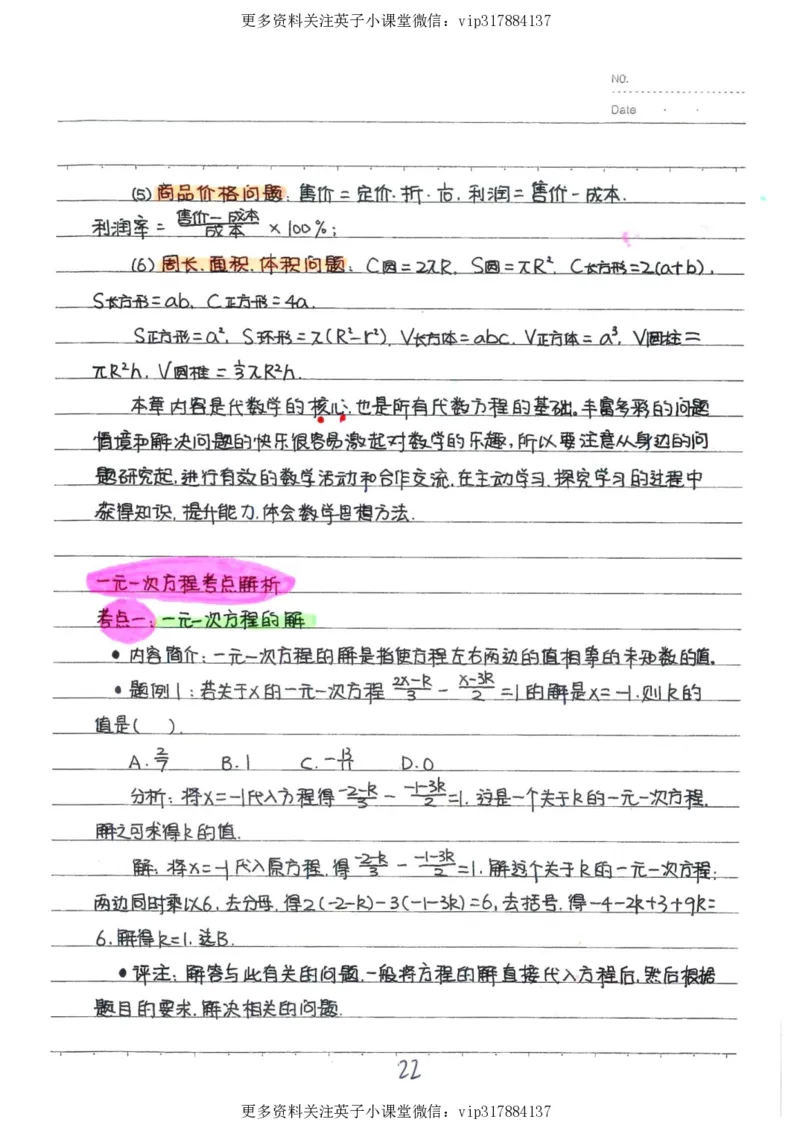 更多资料关注英子小课堂微信：vip317884137
NO.
Date
(5) 商品价格问题：售价=定价·折·10，利润=售价-成本，
利润率=(售价-成本)/成本×100%；
(6) 周长、面积、体积问题：C圆=2πR，S圆=πR²，C长方形=2(a+b)，
S长方形=ab，C正方形=4a，
S正方形=a²，S环形=π(R²-r²)，V长方体=abc，V正方体=a³，V圆柱=
πR²h，V圆锥=1/3πR²h.
本章内容是代数学的核心，也是所有代数方程的基础。丰富多彩的问题
情境和解决问题的快乐很容易激起对数学的乐趣，所以要注意从身边的问
题研究起，进行有效的数学活动和合作交流，在主动学习、探究学习的过程中
获得知识，提升能力，体会数学思想方法.
一元一次方程考点解析
考点一：一元一次方程的解
•内容简介：一元一次方程的解是指使方程左右两边的值相等的未知数的值。
•题例1：若关于x的一元一次方程(2x-k)/3-(x-3k)/2=1的解是x=-1，则k的
值是( ).
A.2/7 B.1 C.-13/11 D.0
分析：将x=-1代入方程得(-2-k)/3-(-1-3k)/2=1，这是一个关于k的一元一次方程，
解之可求得k的值.
解：将x=-1代入原方程，得(-2-k)/3-(-1-3k)/2=1，解这个关于k的一元一次方程：
两边同时乘以6，去分母，得2(-2-k)-3(-1-3k)=6，去括号，得-4-2k+3+9k=
6，解得k=1，选B.
•评注：解答与此有关的问题，一般将方程的解直接代入方程后，然后根据
题目的要求，解决相关的问题.
22
更多资料关注英子小课堂微信：vip317884137